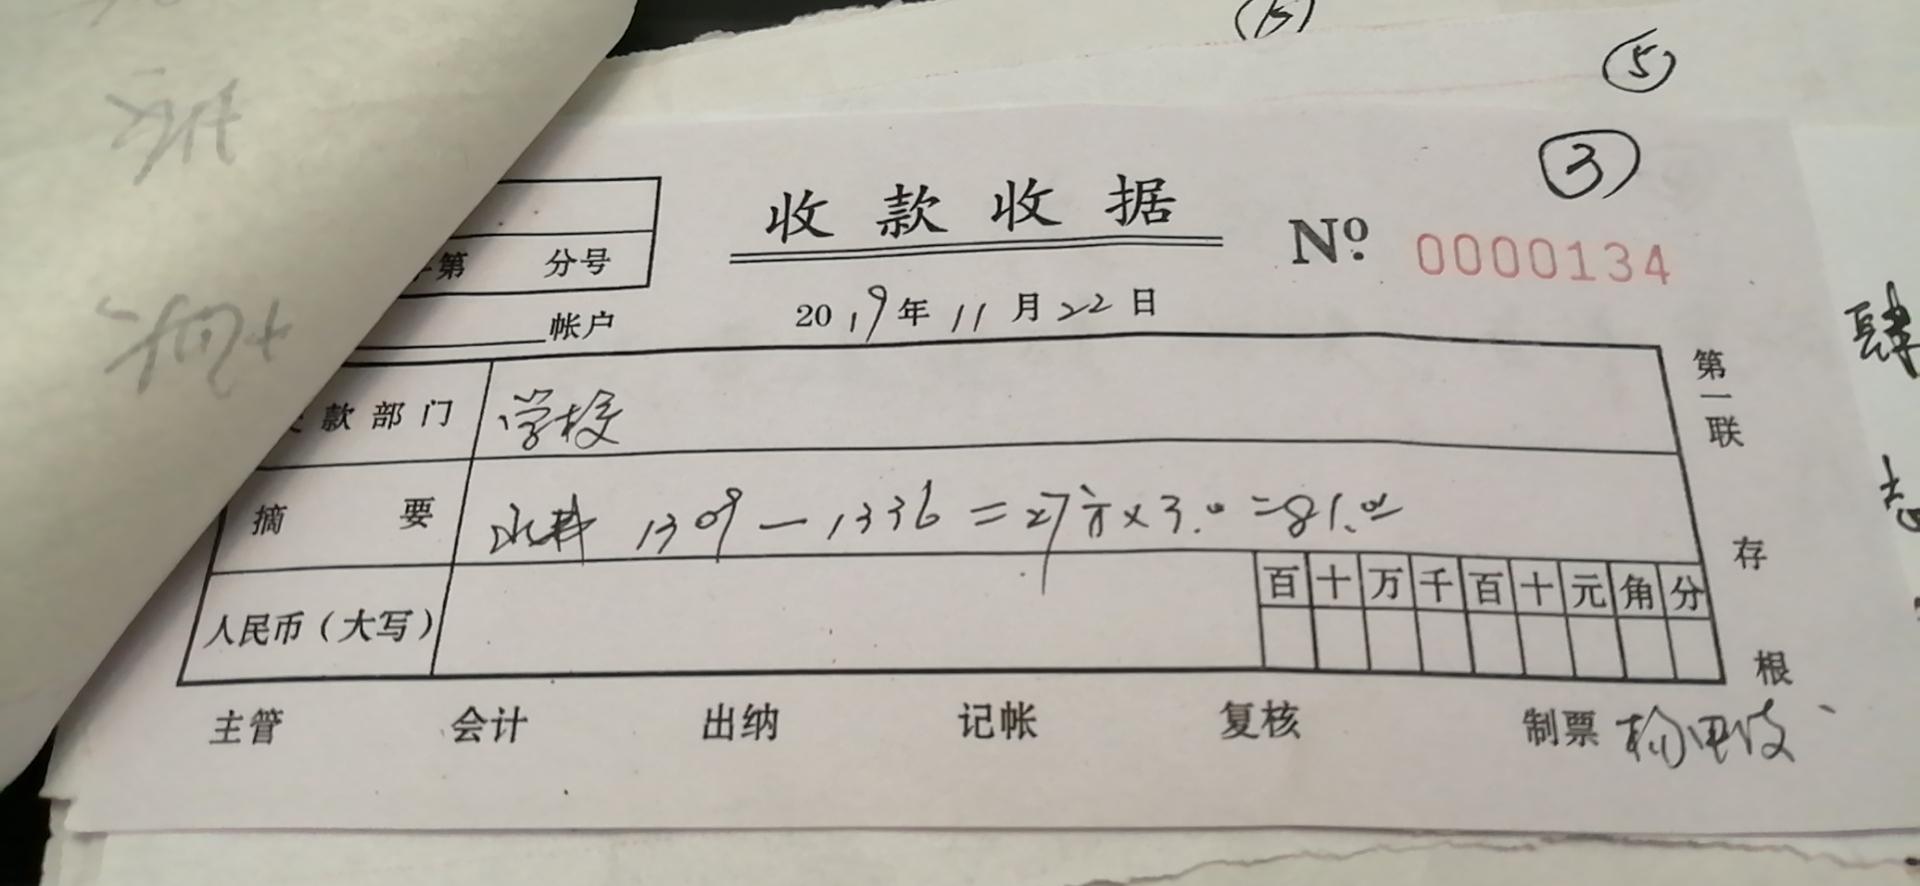 ⑤
③
收款收据
№ 0000134
第 分号
帐户
2019年11月22日
款部门 学校
摘要 水费 1309—1336=27方×3.0=81.00
人民币（大写）
百 十 万 千 百 十 元 角 分
主管 会计 出纳 记帐 复核 制票
第一联 存根
肆